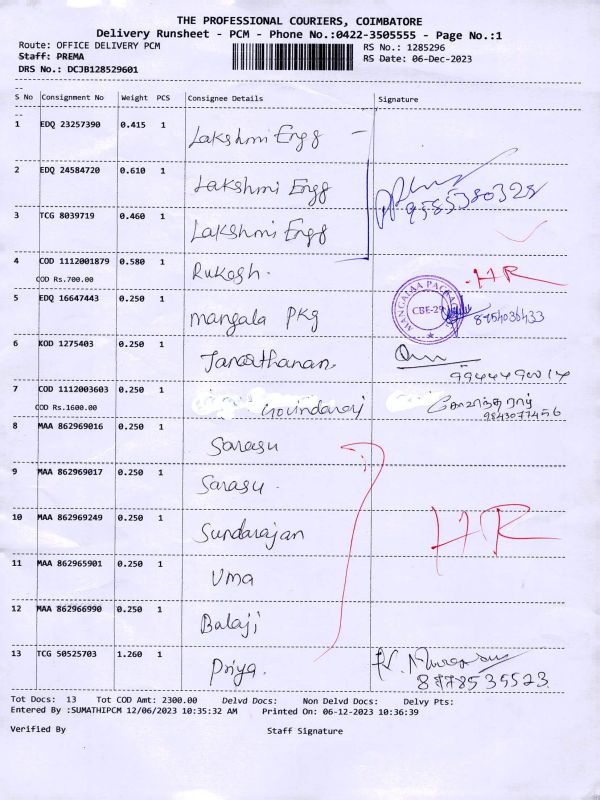 THE PROFESSIONAL COURIERS, COIMBATORE
Delivery Runsheet - PCM - Phone No.:0422-3505555 - Page No.:1
Route: OFFICE DELIVERY PCM RS No.: 1285296
Staff: PREMA RS Date: 06-Dec-2023
DRS No.: DCJB128529601
--
S No Consignment No Weight PCS Consignee Details Signature
--
1 EDQ 23257390 0.415 1 Lakshmi Engg
2 EDQ 24584720 0.610 1 Lakshmi Engg 9585380328
3 TCG 8039719 0.460 1 Lakshmi Engg
4 COD 1112001879 0.580 1 Rukesh. HR
COD Rs.700.00
5 EDQ 16647443 0.250 1 mangala PKg MANGALAA PACKAG CBE-29 8754036433
6 KOD 1275403 0.250 1 Janarthanan.
7 COD 1112003603 0.250 1 Govindaraj கோவிந்தராஜ்
COD Rs.1600.00 9843077456
8 MAA 862969016 0.250 1 Sarasu
9 MAA 862969017 0.250 1 Sarasu.
10 MAA 862969249 0.250 1 Sundarajan HR
11 MAA 862965901 0.250 1 Uma
12 MAA 862966990 0.250 1 Balaji
13 TCG 50525703 1.260 1 Priya.
8778535523
Tot Docs: 13 Tot COD Amt: 2300.00 Delvd Docs: Non Delvd Docs: Delvy Pts:
Entered By :SUMATHIPCM 12/06/2023 10:35:32 AM Printed On: 06-12-2023 10:36:39
Verified By Staff Signature